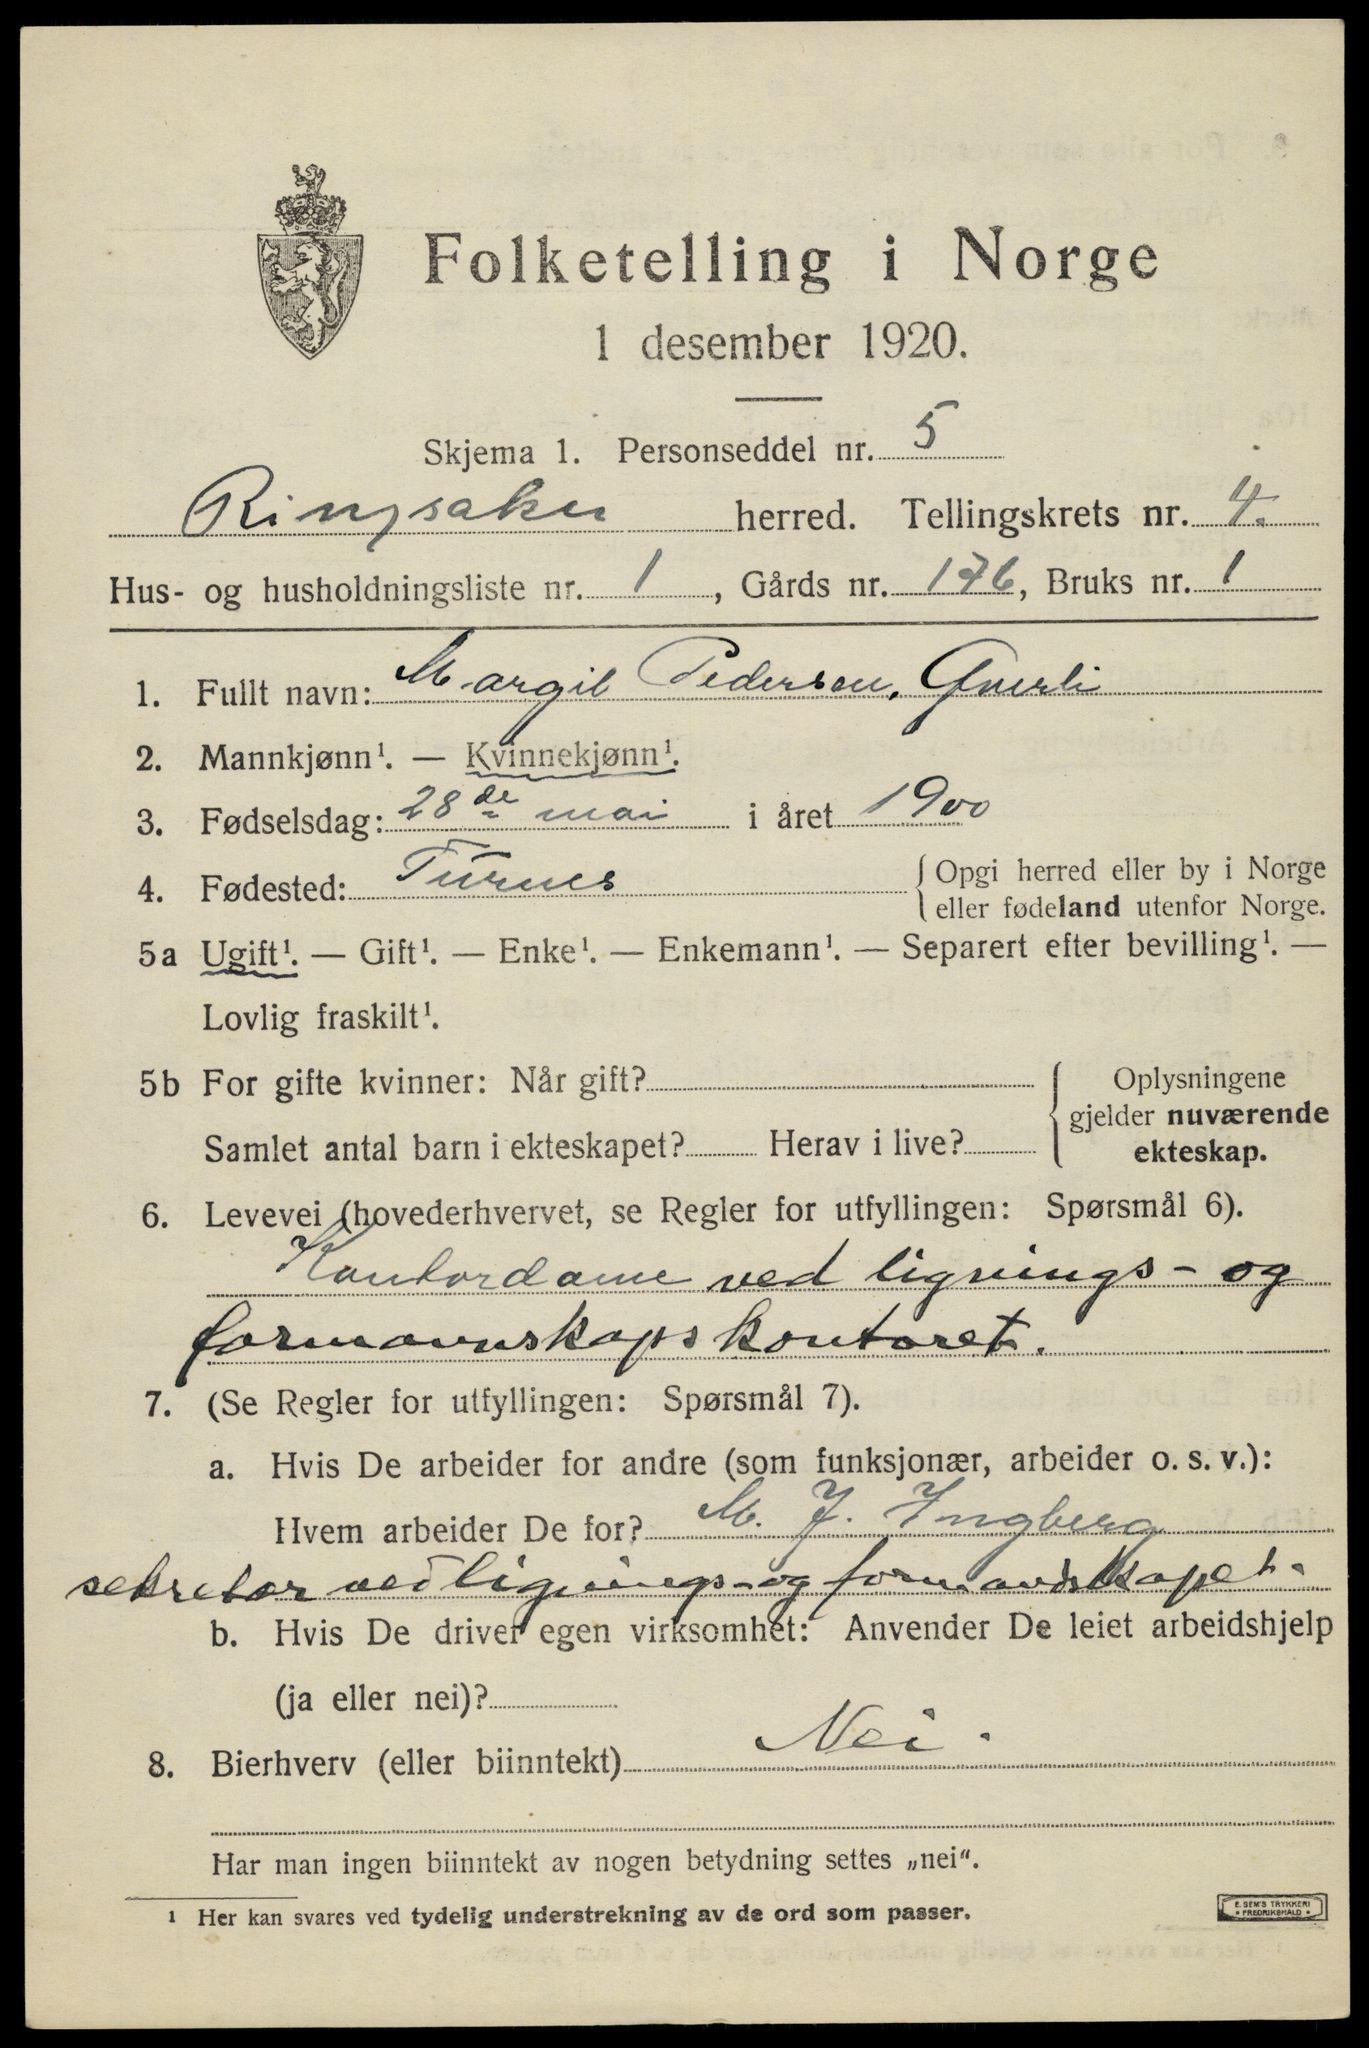 Folketelling i Norge
1 desember 1920.
Skjema 1. Personseddel nr. 5
Ringsaker herred. Tellingskrets nr. 4.
Hus- og husholdningsliste nr. 1, Gårds nr. 176, Bruks nr. 1
1. Fullt navn: Margit Pedersen,
2. Mannkjønn¹. — Kvinnekjønn¹.
3. Fødselsdag: 28de mai i året 1900
4. Fødested: Furnes {Opgi herred eller by i Norge
eller fødeland utenfor Norge.
5a Ugift¹. — Gift¹. — Enke¹. — Enkemann¹. — Separert efter bevilling¹. —
Lovlig fraskilt¹.
5b For gifte kvinner: Når gift? { Oplysningene
gjelder nuværende
Samlet antal barn i ekteskapet? Herav i live? ekteskap.
6. Levevei (hovederhvervet, se Regler for utfyllingen: Spørsmål 6).
Kontordame ved lignings- og
formannskapskontoret.
7. (Se Regler for utfyllingen: Spørsmål 7).
a. Hvis De arbeider for andre (som funksjonær, arbeider o. s. v.):
Hvem arbeider De for? M. J. Yngberg
sekretær ved lignings- og formandskapet.
b. Hvis De driver egen virksomhet: Anvender De leiet arbeidshjelp
(ja eller nei)?
8. Bierhverv (eller biinntekt) Nei.
Har man ingen biinntekt av nogen betydning settes „nei“.
¹ Her kan svares ved tydelig understrekning av de ord som passer.
E. SEM'S TRYKKERI
• FREDRIKSHALD •